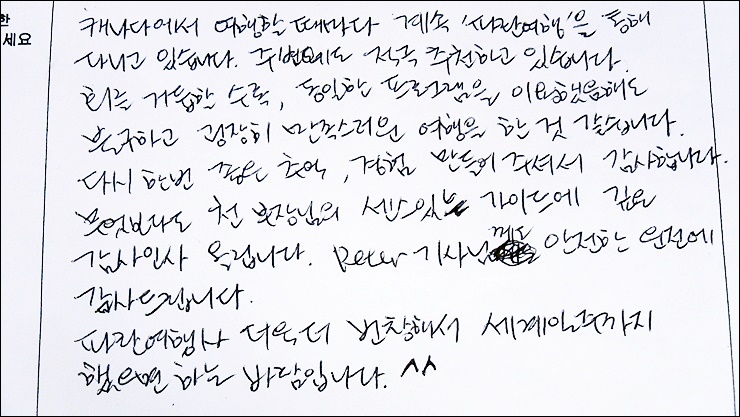 한
세요
캐나다에서 여행할 때마다 계속 '파란여행'을 통해
다니고 있습니다. 주변에도 적극 추천하고 있습니다.
회를 거듭할 수록, 동일한 프로그램을 이용했음에도
불구하고 굉장히 만족스러운 여행을 한 것 같습니다.
다시 한번 좋은 추억, 경험 만들어 주셔서 감사합니다.
무엇보다도 천 부장님의 센스있는 가이드에 깊은
감사인사 올립니다. Peter 기사님께도 안전한 운전에
감사드립니다.
파란여행사 더욱더 번창해서 세계일주까지
했으면 하는 바람입니다. ^^